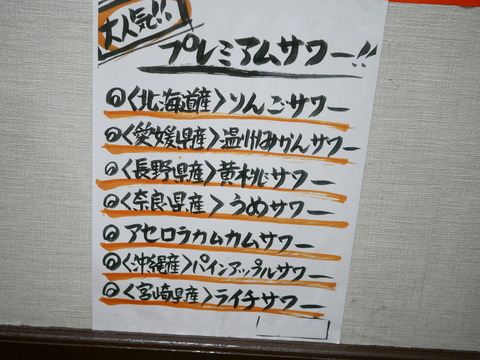 大人気!!
プレミアムサワー!!
〈北海道産〉りんごサワー
〈愛媛県産〉温州みかんサワー
〈長野県産〉黄桃サワー
〈奈良県産〉うめサワー
アセロラカムカムサワー
〈沖縄産〉パインアップルサワー
〈宮崎県産〉ライチサワー